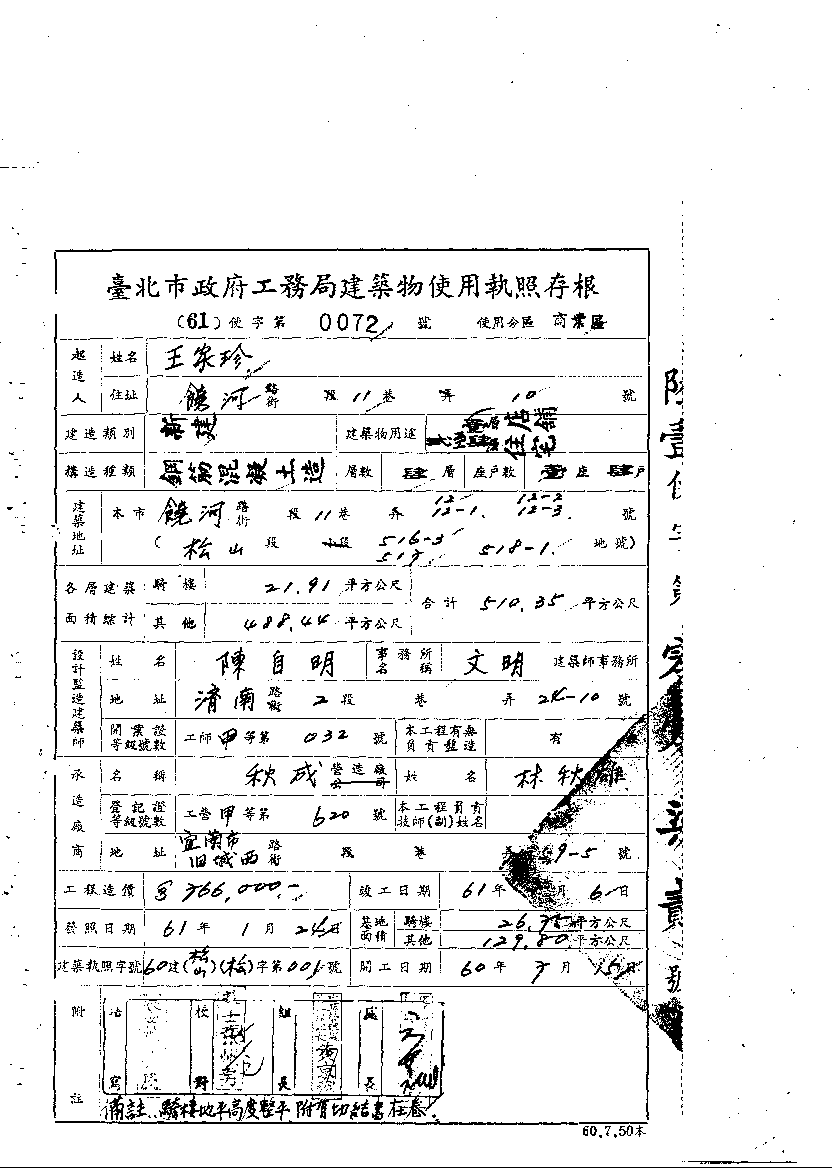 臺北市政府工務局建築物使用執照存根
(61)使字第 0072 號 使用分區 商業區
起造人 姓名 王家珍
住址 饒河 路街 段 11 巷 弄 10 號
建造類別 新建 建築物用途 店舖 住宅
構造種類 鋼筋混凝土造 層數 肆 層 座戶數 壹 座 肆 戶
建築地址 本市 饒河 路街 段 11 巷 弄 12 12-1. 12-2 12-3. 號
( 松山 段 小段 516-3 517. 518-1. 地號)
各層建築面積總計 騎樓 21.91 平方公尺 合計 510.35 平方公尺
其他 488.44 平方公尺
設計監造建築師 姓名 陳自明 事務所名稱 文明 建築師事務所
地址 濟南 路街 2 段 巷 弄 24-10 號
開業證等級號數 工師 甲 等第 032 號 本工程有無負責監造 有
承造廠商 名稱 秋成 營造廠公司 姓名 林秋雄
登記證等級號數 工營 甲 等第 620 號 本工程負責技師(副)姓名
地址 宜蘭市旧城西 路街 段 巷 弄 59-5 號
工程造價 766,000.- 竣工日期 61 年 月 6 日
發照日期 61 年 1 月 24 日 基地面積 騎樓 26.75 平方公尺
其他 129.80 平方公尺
建築執照字號 60建(松山)(松)字第001號 開工日期 60 年 7 月 15 日
附註 繕寫 校對 組長 處長
備註. 騎樓地平高度整平 附有切結書在卷.
60.7.50本